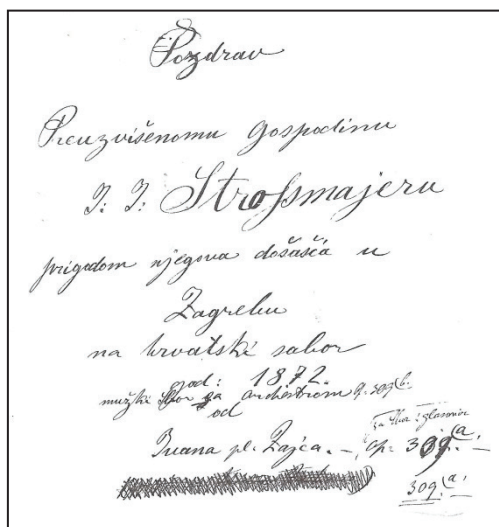 Pozdrav
Preuzvišenomu Gospodinu
J. J. Stroßmajeru
prigodom njegova došašća u
Zagrebu
na hrvatski sabor
god: 1872.
mužki sbor sa orchestrom Op. 309(b.
od
za sbor i glasovir
Ivana pl. Zajca. – Op. 309(a. –
309(a.